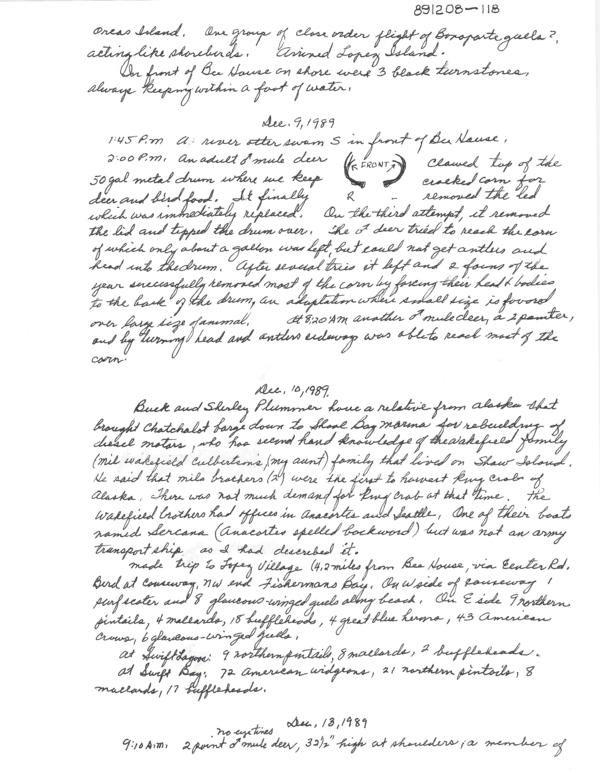 891208-118
Orcas Island. One group of close order flight of Bonaparte gulls?,
acting like shorebirds. Arrived Lopez Island.
In front of Bee House on shore were 3 black turnstones,
always keeping within a foot of water.
Dec. 9, 1989
1:45 P.m. A river otter swam S in front of Bee House.
2:00 P.m. An adult ♂ mule deer FRONT clawed top of the
50 gal metal drum where we keep cracked corn for
deer and bird food. It finally R removed the lid
which was immediately replaced. On the third attempt, it removed
the lid and tipped the drum over. The ♂ deer tried to reach the corn
of which only about a gallon was left, but could not get antlers and
head into the drum. After several tries it left and 2 fawns of the
year successfully removed most of the corn by forcing their head & bodies
to the back of the drum, an adaptation where small size is favored
over large size of animal. At 8:20 AM another ♂ mule deer, a 2 pointer,
and by turning head and antlers sideways was able to reach most of the
corn.
Dec. 10, 1989.
Buck and Shirley Plummer have a relative from Alaska that
brought Chatchalot barge down to Shoal Bay marina for rebuilding of
diesel motors, who has second hand knowledge of the Wakefield family
(mil Wakefield Culbertions, my aunt) family that lived on Shaw Island.
He said that milo brothers (2) were the first to harvest King crab of
Alaska. There was not much demand for King crab at that time. The
Wakefield brothers had offices in Anacortes and Seattle. One of their boats
named Sercana (Anacortes spelled backward) but was not an army
transport ship as I had described it.
made trip to Lopez Village (4.2 miles from Bee House, via Center Rd.
Bird at Causeway, NW end Fishermans Bay. On W side of causeway 1
surf scoter and 8 glaucous-winged gulls along beach. On E side 9 northern
pintails, 4 mallards, 18 buffleheads, 4 great blue herons, 43 American
Crows, 6 glaucous-winged gulls.
At Swift Lagoon: 9 northern pintails, 8 mallards, 2 buffleheads.
At Swift Bay: 72 American widgeons, 21 northern pintails, 8
mallards, 17 buffleheads.
Dec. 13, 1989
no eye tines
9:10 A.m. 2 point ♂ mule deer, 32½" high at shoulders, a member of